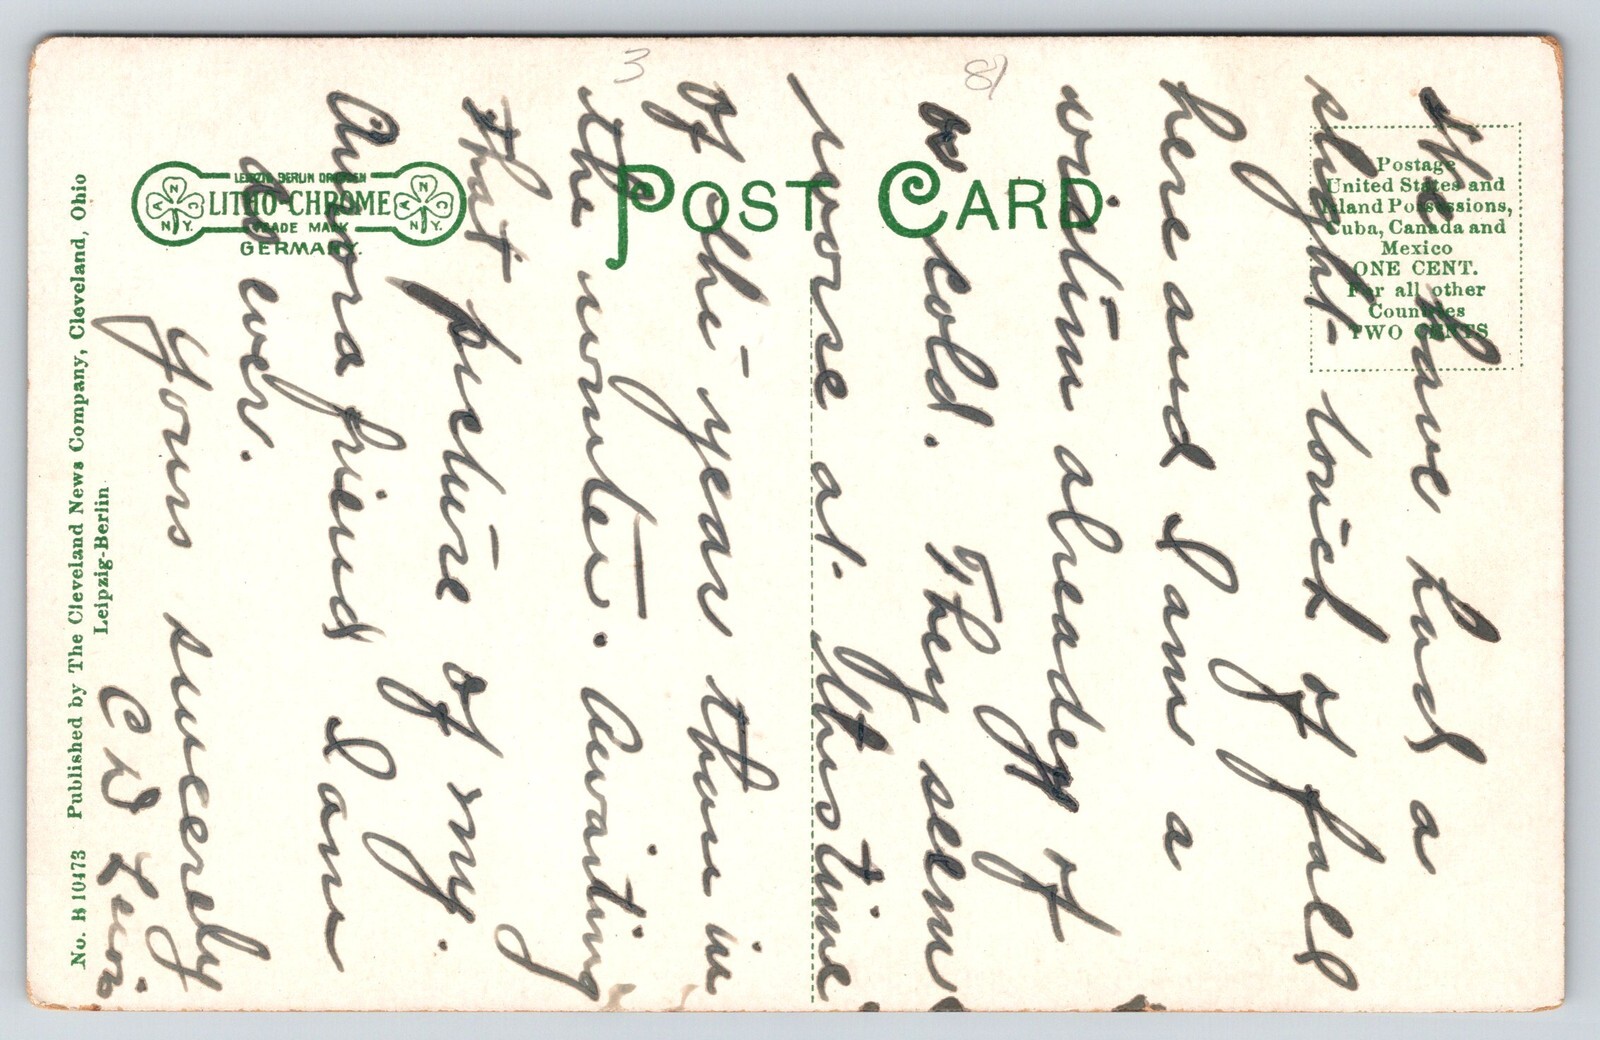 We have had a
slight touch of fall
here and I am a
victim already of
a cold. They seem
worse at this time
of the year than in
the winter. Awaiting
that picture of my
Aurora friend I am
as ever.
Yours sincerely
C D Lewis
3
82
POST CARD
LEIPZIG BERLIN DRESDEN
LITHO-CHROME
TRADE MARK
GERMANY.
N
A
C
N.Y.
N
A
C
N.Y.
Postage
United States and
Island Possessions,
Cuba, Canada and
Mexico
ONE CENT.
For all other
Countries
TWO CENTS
No. B 10473 Published by The Cleveland News Company, Cleveland, Ohio
Leipzig-Berlin